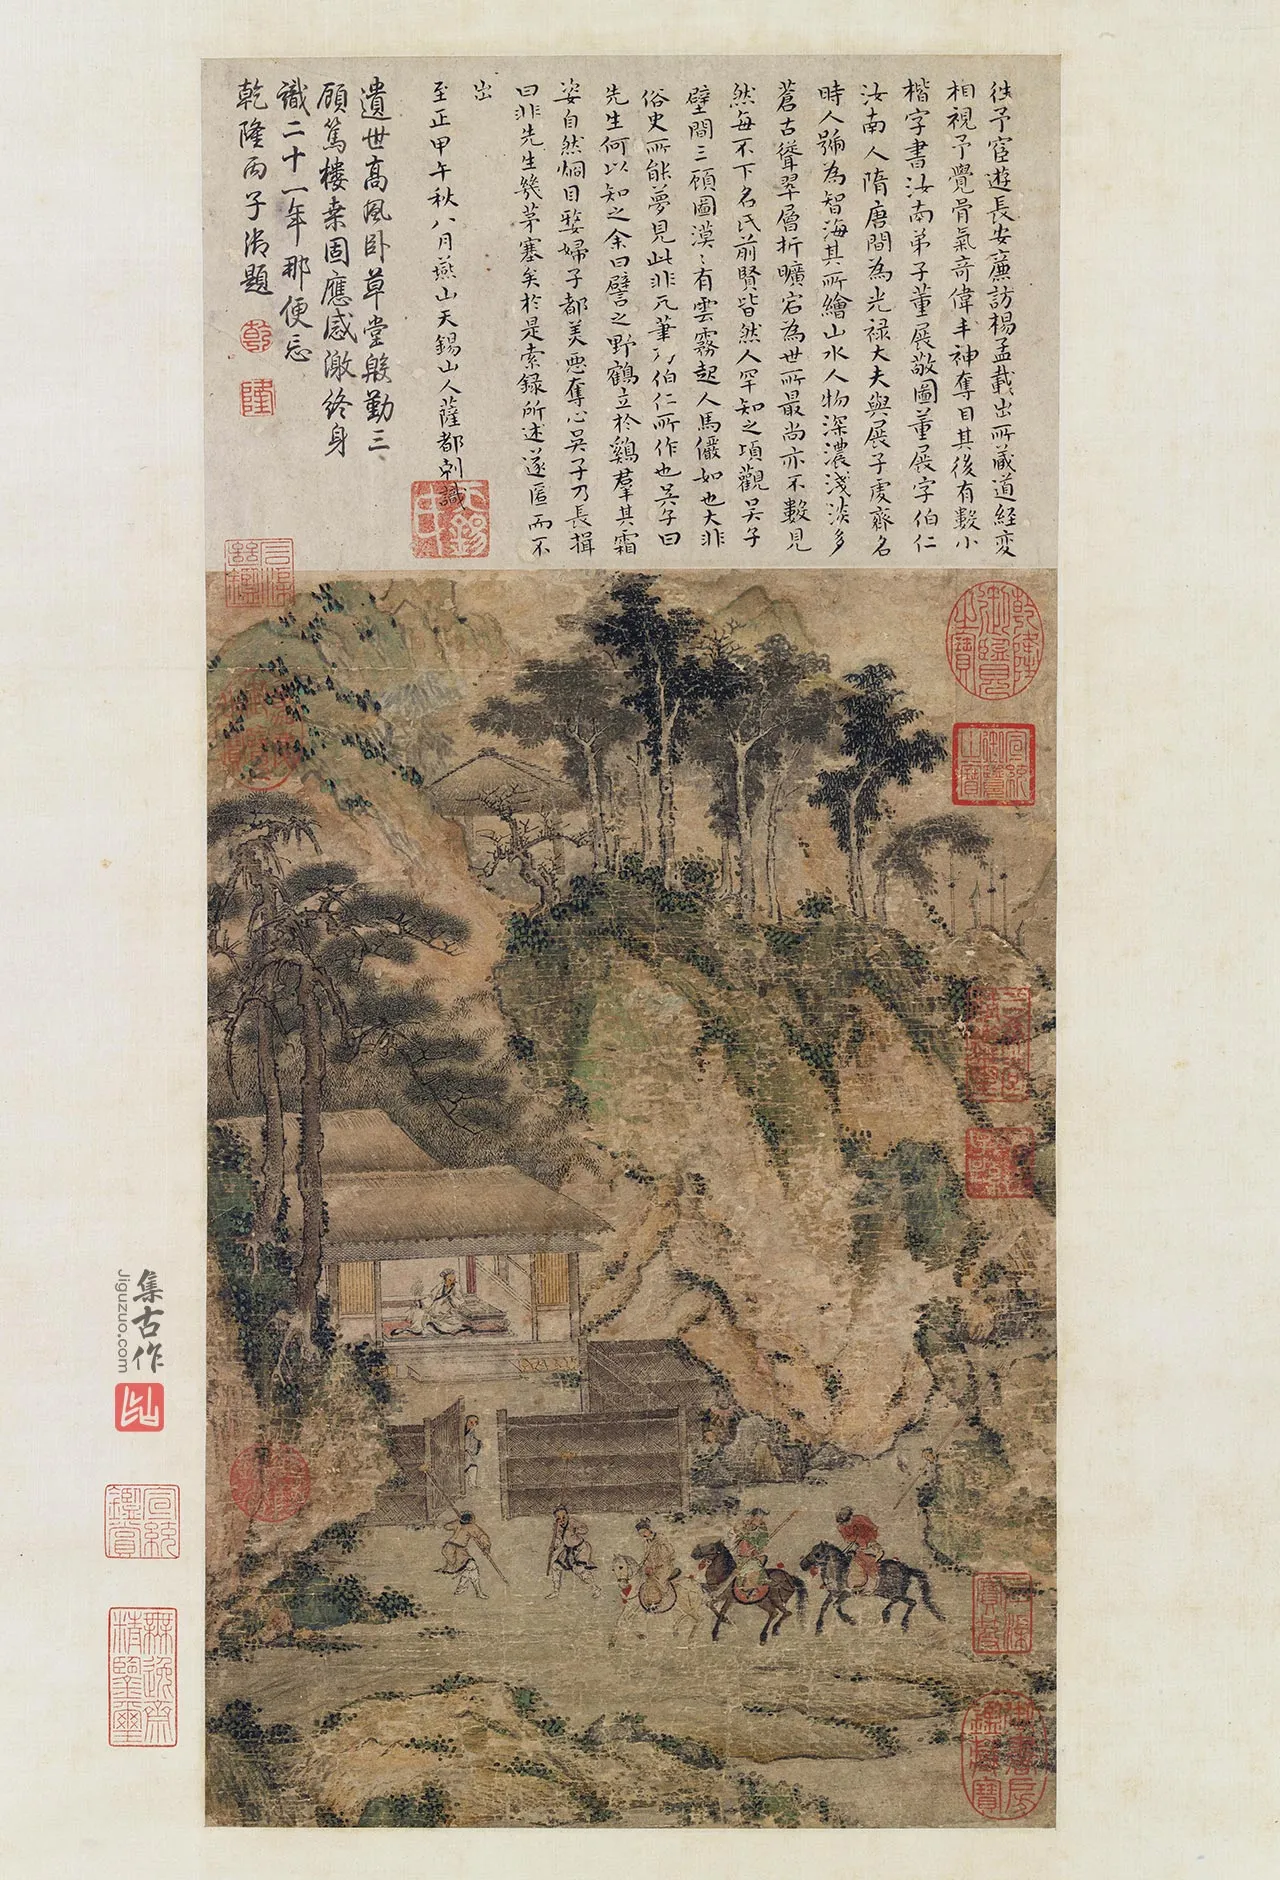 往予宦遊長安蘆訪楊孟載出所蔵道經変
相視予覺骨氣奇偉丰神奪目其後有數小
楷字書汝南弟子董展敬圖董展字伯仁
汝南人隋唐間為光禄大夫與展子虔齊名
時人號為智海其所繪山水人物深濃淺淡多
蒼古聳翠層折曠宕為世所最尚亦不數見
然每不下名氏前賢皆然人罕知之項觀吴子
壁間三顧圖漠〻有雲霧起人馬儼如也大非
俗史所能夢見此非凡筆乃伯仁所作也吴子曰
先生何以知之余曰譬之野鶴立於鷄羣其霜
姿自然炯目嫠婦子都美惡奪心吴子乃長揖
曰非先生幾茅塞矣於是索録所述遂匿而不
出
至正甲午秋八月燕山天錫山人薩都剌識
遺世高風卧草堂殷勤三
顧篤樓桒固應感激終身
識二十一年那便忘
乾隆丙子御題
乾
隆
天錫
乾隆御覽之寶
宣統御覽之寶
宣統鑑賞
無逸齋精鑒璽
御書房鑑藏寶
集古作
Jiguzuo.com